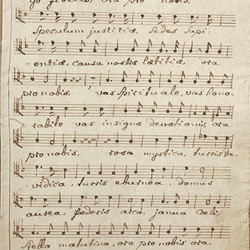 go fidelis, ora pro nobis.
Speculum justitiæ, Sedes Sapi-
entiæ, causa nostræ lætitiæ, ora
pro nobis. vas Spirituale, vas hono-
rabile vas insigne devotionis ora
pro nobis, rosa mystica, turris Da-
vidica, turris eburnea, domus
aurea, foederis arca, janua Coeli,
stella matutina, ora pro nobis ora